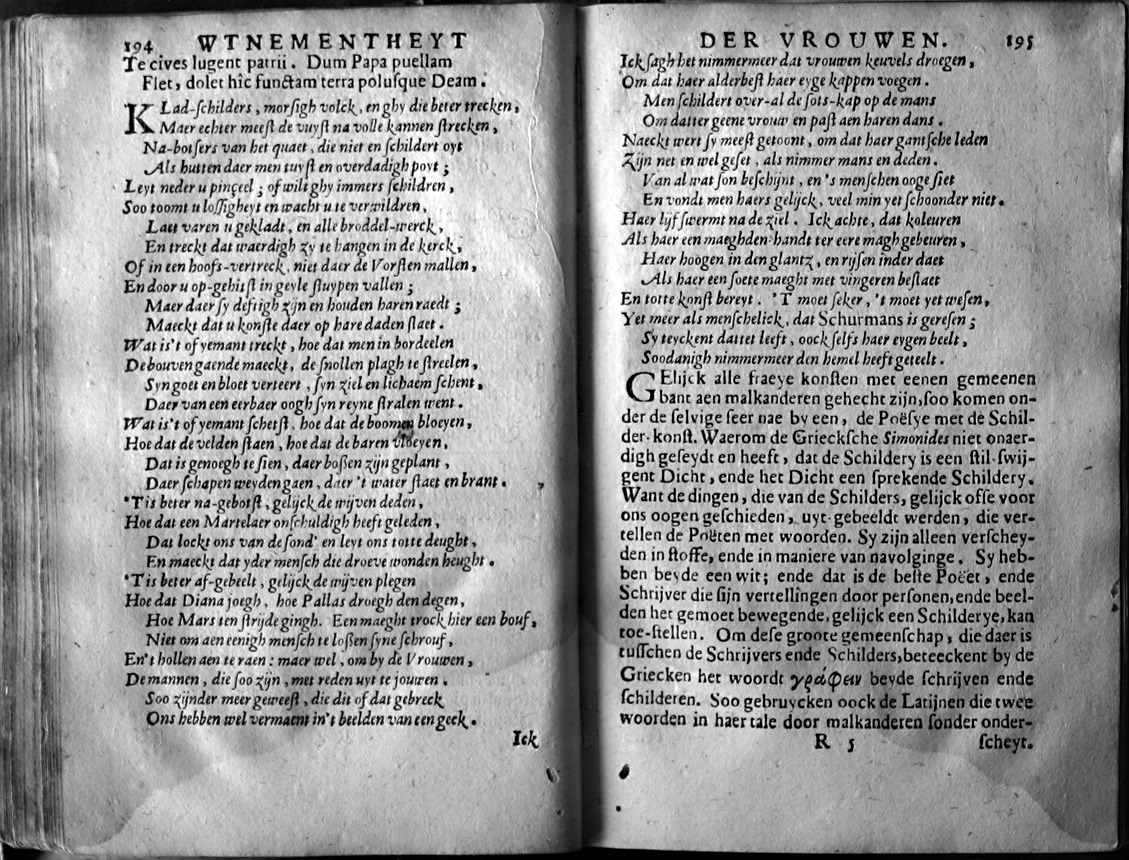 194 WTNEMENTHEYT
Te cives lugent patrii. Dum Papa puellam
Flet, dolet hîc functam terra polusque Deam.
KLad-schilders, morsigh volck, en ghy die beter trecken,
Maer echter meest de vuyst na volle kannen strecken,
Na-botsers van het quaet, die niet en schildert oyt
Als hutten daer men tuyst en overdadigh poyt;
Leyt neder u pinçeel; of wilt ghy immers schildren,
Soo toomt u lossigheyt en wacht u te verwildren,
Laet varen u gekladt, en alle broddel-werck,
En treckt dat waerdigh zy te hangen in de kerck,
Of in een hoofs-vertreck, niet daer de Vorsten mallen,
En door u op-gehitst in geyle stuypen vallen;
Maer daer sy deftigh zijn en houden haren raedt;
Maeckt dat u konste daer op hare daden slaet.
Wat is't of yemant treckt, hoe dat men in bordeelen
De bouven gaende maeckt, de snollen plagh te streelen,
Syn goet en bloet verteert, syn ziel en lichaem schent,
Daer van een eerbaer oogh syn reyne stralen went.
Wat is't of yemant schetst, hoe dat de boomen bloeyen,
Hoe dat de velden staen, hoe dat de baren vloeyen,
Dat is genoegh te sien, daer boßen zijn geplant,
Daer schapen weyden gaen, daer 't water slaet en brant.
'Tis beter na-gebotst, gelijck de wijven deden,
Hoe dat een Martelaer onschuldigh heeft geleden,
Dat lockt ons van de sond' en leyt ons totte deught,
En maeckt dat yder mensch die droeve wonden heught.
'Tis beter af-gebeelt, gelijck de wijven plegen
Hoe dat Diana joegh, hoe Pallas droegh den degen,
Hoe Mars ten strijde gingh. Een maeght trock hier een bouf,
Niet om aen eenigh mensch te loßen syne schrouf,
En't hollen aen te raen: maer wel, om by de Vrouwen,
De mannen, die soo zijn, met reden uyt te jouwen.
Soo zijnder meer geweest, die dit of dat gebreck
Ons hebben wel vermaent in't beelden van een geck.
Ick
DER VROUWEN. 195
Ick sagh het nimmermeer dat vrouwen keuvels droegen,
Om dat haer alderbest haer eyge kappen voegen.
Men schildert over-al de sots-kap op de mans
Om datter geene vrouw en past aen haren dans.
Naeckt wert sy meest getoont, om dat haer gantsche leden
Zijn net en wel geset, als nimmer mans en deden.
Van al wat son beschijnt, en 's menschen ooge siet
En vondt men haers gelijck, veel min yet schoonder niet.
Haer lijf swermt na de ziel. Ick achte, dat koleuren
Als haer een maeghden-handt ter eere magh gebeuren,
Haer hoogen in den glantz, en rijsen inder daet
Als haer een soete maeght met vingeren beslaet
En totte konst bereyt. 'T moet seker, 't moet yet wesen,
Yet meer als menschelick, dat Schurmans is geresen;
Sy teyckent dattet leeft, oock selfs haer eygen beelt,
Soodanigh nimmermeer den hemel heeft geteelt.
GElijck alle fraeye konsten met eenen gemeenen
bant aen malkanderen gehecht zijn, soo komen on-
der de selvige seer nae by een, de Poësye met de Schil-
der-konst. Waerom de Griecksche Simonides niet onaer-
digh geseydt en heeft, dat de Schildery is een stil-swij-
gent Dicht, ende het Dicht een sprekende Schildery.
Want de dingen, die van de Schilders, gelijck offe voor
ons oogen geschieden, uyt-gebeeldt werden, die ver-
tellen de Poëten met woorden. Sy zijn alleen verschey-
den in stoffe, ende in maniere van navolginge. Sy heb-
ben beyde een wit; ende dat is de beste Poëet, ende
Schrijver die sijn vertellingen door personen, ende beel-
den het gemoet bewegende, gelijck een Schilderye, kan
toe-stellen. Om dese groote gemeenschap, die daer is
tusschen de Schrijvers ende Schilders, beteeckent by de
Griecken het woordt γράφειν beyde schrijven ende
schilderen. Soo gebruycken oock de Latijnen die twee
woorden in haer tale door malkanderen sonder onder-
R 5 scheyt.